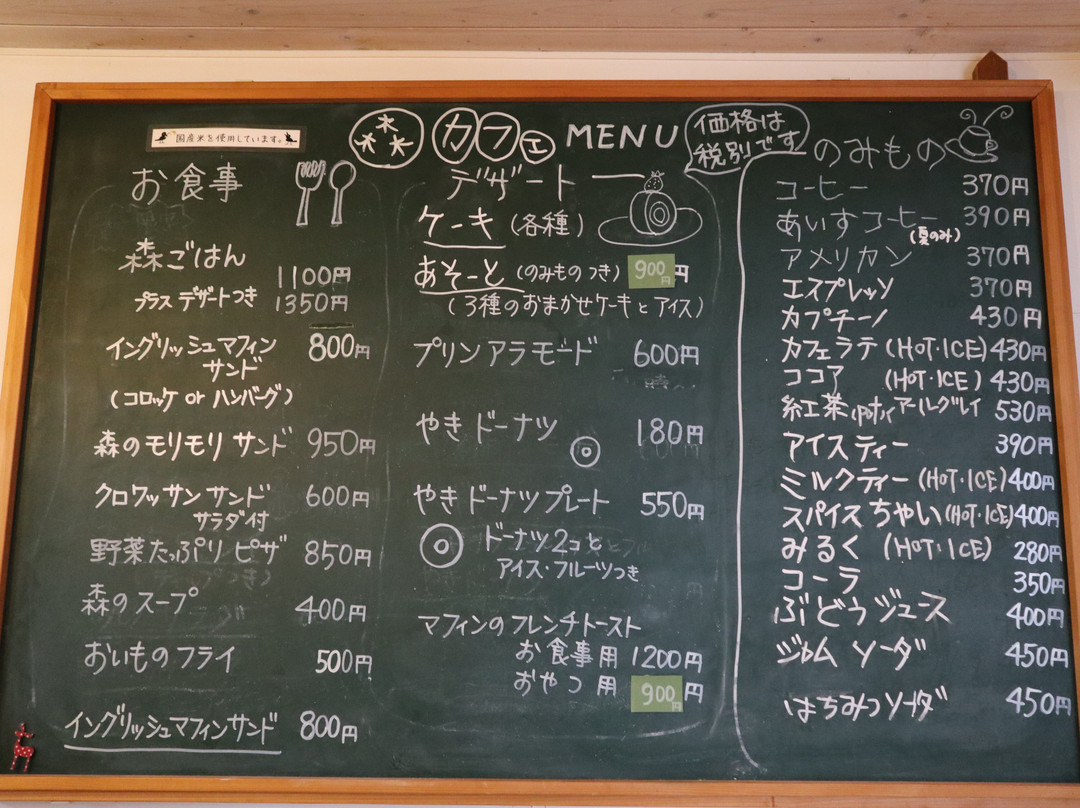 国産米を使用しています。
木木木 カフェ MENU
価格は
税別です
お食事
森ごはん 1100円
プラス デザートつき 1350円
イングリッシュマフィン
サンド 800円
(コロッケ or ハンバーグ)
森のモリモリ サンド 950円
クロワッサン サンド 600円
サラダ付
野菜たっぷり ピザ 850円
森のスープ 400円
おいものフライ 500円
イングリッシュマフィンサンド 800円
デザート
ケーキ (各種)
あそーと (のみもの つき) 900円
(3種のおまかせケーキと アイス)
プリン アラモード 600円
やき ドーナツ 180円
やき ドーナツ プレート 550円
ドーナツ 2コ と
アイス・フルーツつき
マフィンのフレンチトースト
お食事用 1200円
おやつ用 900円
のみもの
コーヒー 370円
あいすコーヒー 390円
(夏のみ)
アメリカン 370円
エスプレッソ 370円
カプチーノ 430円
カフェラテ (HOT・ICE) 430円
ココア (HOT・ICE) 430円
紅茶 (pot) アールグレイ 530円
アイスティー 390円
ミルクティー (HOT・ICE) 400円
スパイス ちゃい (HOT・ICE) 400円
みるく (HOT・ICE) 280円
コーラ 350円
ぶどうジュース 400円
ジャム ソーダ 450円
はちみつソーダ 450円